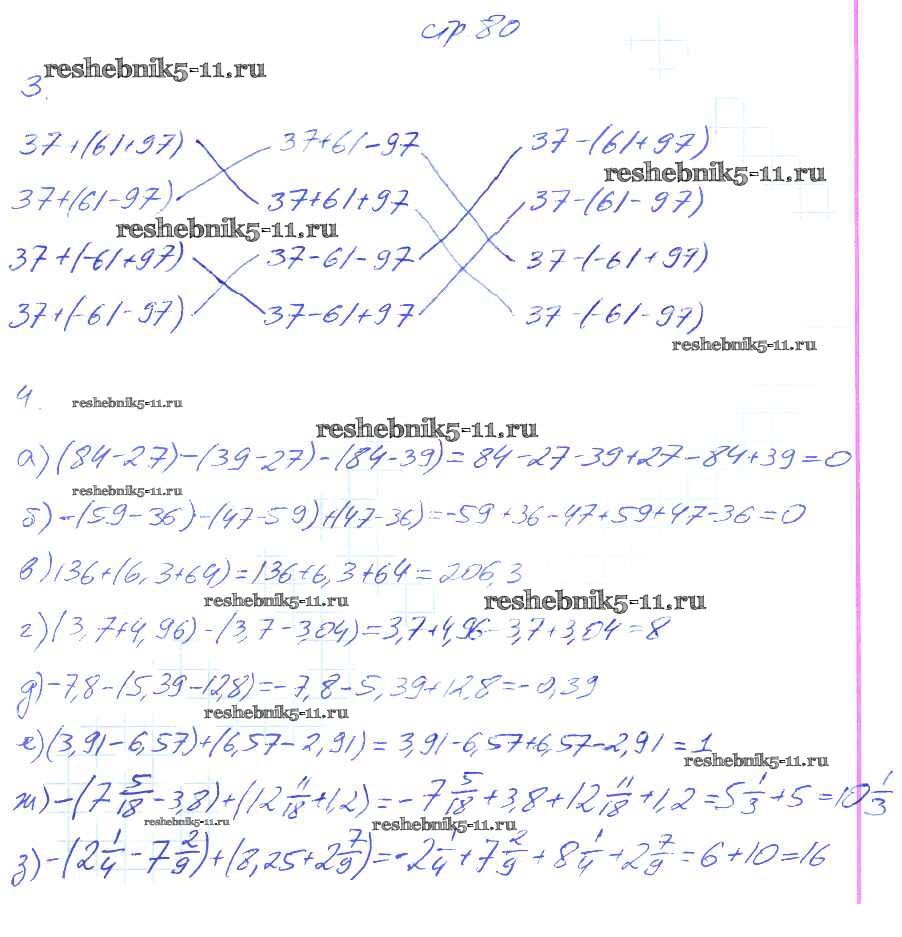 стр 80
reshebnik5-11.ru
3.
37+(61+97) 37+61-97 37-(61+97)
reshebnik5-11.ru
37+(61-97) 37+61+97 37-(61-97)
reshebnik5-11.ru
37+(-61+97) 37-61-97 37-(-61+97)
37+(-61-97) 37-61+97 37-(-61-97)
reshebnik5-11.ru
4.
reshebnik5-11.ru
reshebnik5-11.ru
а) (84-27)-(39-27)-(84-39)=84-27-39+27-84+39=0
reshebnik5-11.ru
б) -(59-36)-(47-59)+(47-36)=-59+36-47+59+47-36=0
в) 136+(6,3+64)=136+6,3+64=206,3
reshebnik5-11.ru reshebnik5-11.ru
г) (3,7+4,96)-(3,7-3,04)=3,7+4,96-3,7+3,04=8
д) -7,8-(5,39-12,8)=-7,8-5,39+12,8=-0,39
reshebnik5-11.ru
е) (3,91-6,57)+(6,57-2,91)=3,91-6,57+6,57-2,91=1
reshebnik5-11.ru
ж) -(7 5/18 -3,8)+(12 11/18 +1,2)=-7 5/18 +3,8+12 11/18 +1,2=5 1/3 +5=10 1/3
reshebnik5-11.ru reshebnik5-11.ru
з) -(2 1/4 - 7 2/9)+(8,25+2 7/9)=-2 1/4 +7 2/9 + 8 1/4 +2 7/9 =6+10=16